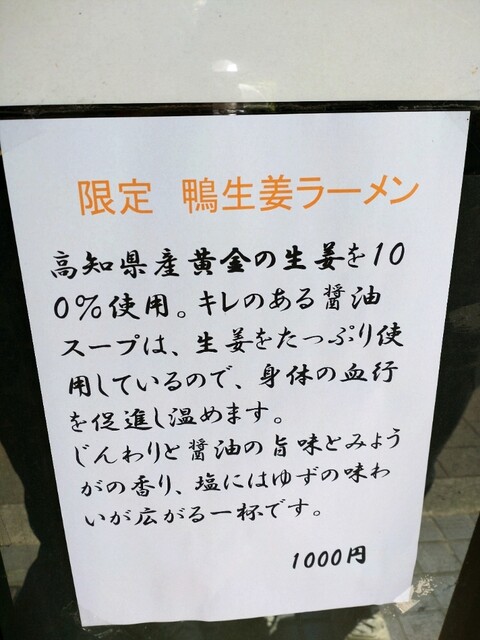 限定　鴨生姜ラーメン
高知県産黄金の生姜を10
0%使用。キレのある醤油
スープは、生姜をたっぷり使
用しているので、身体の血行
を促進し温めます。
じんわりと醤油の旨味とみょう
がの香り、塩にはゆずの味わ
いが広がる一杯です。
1000円